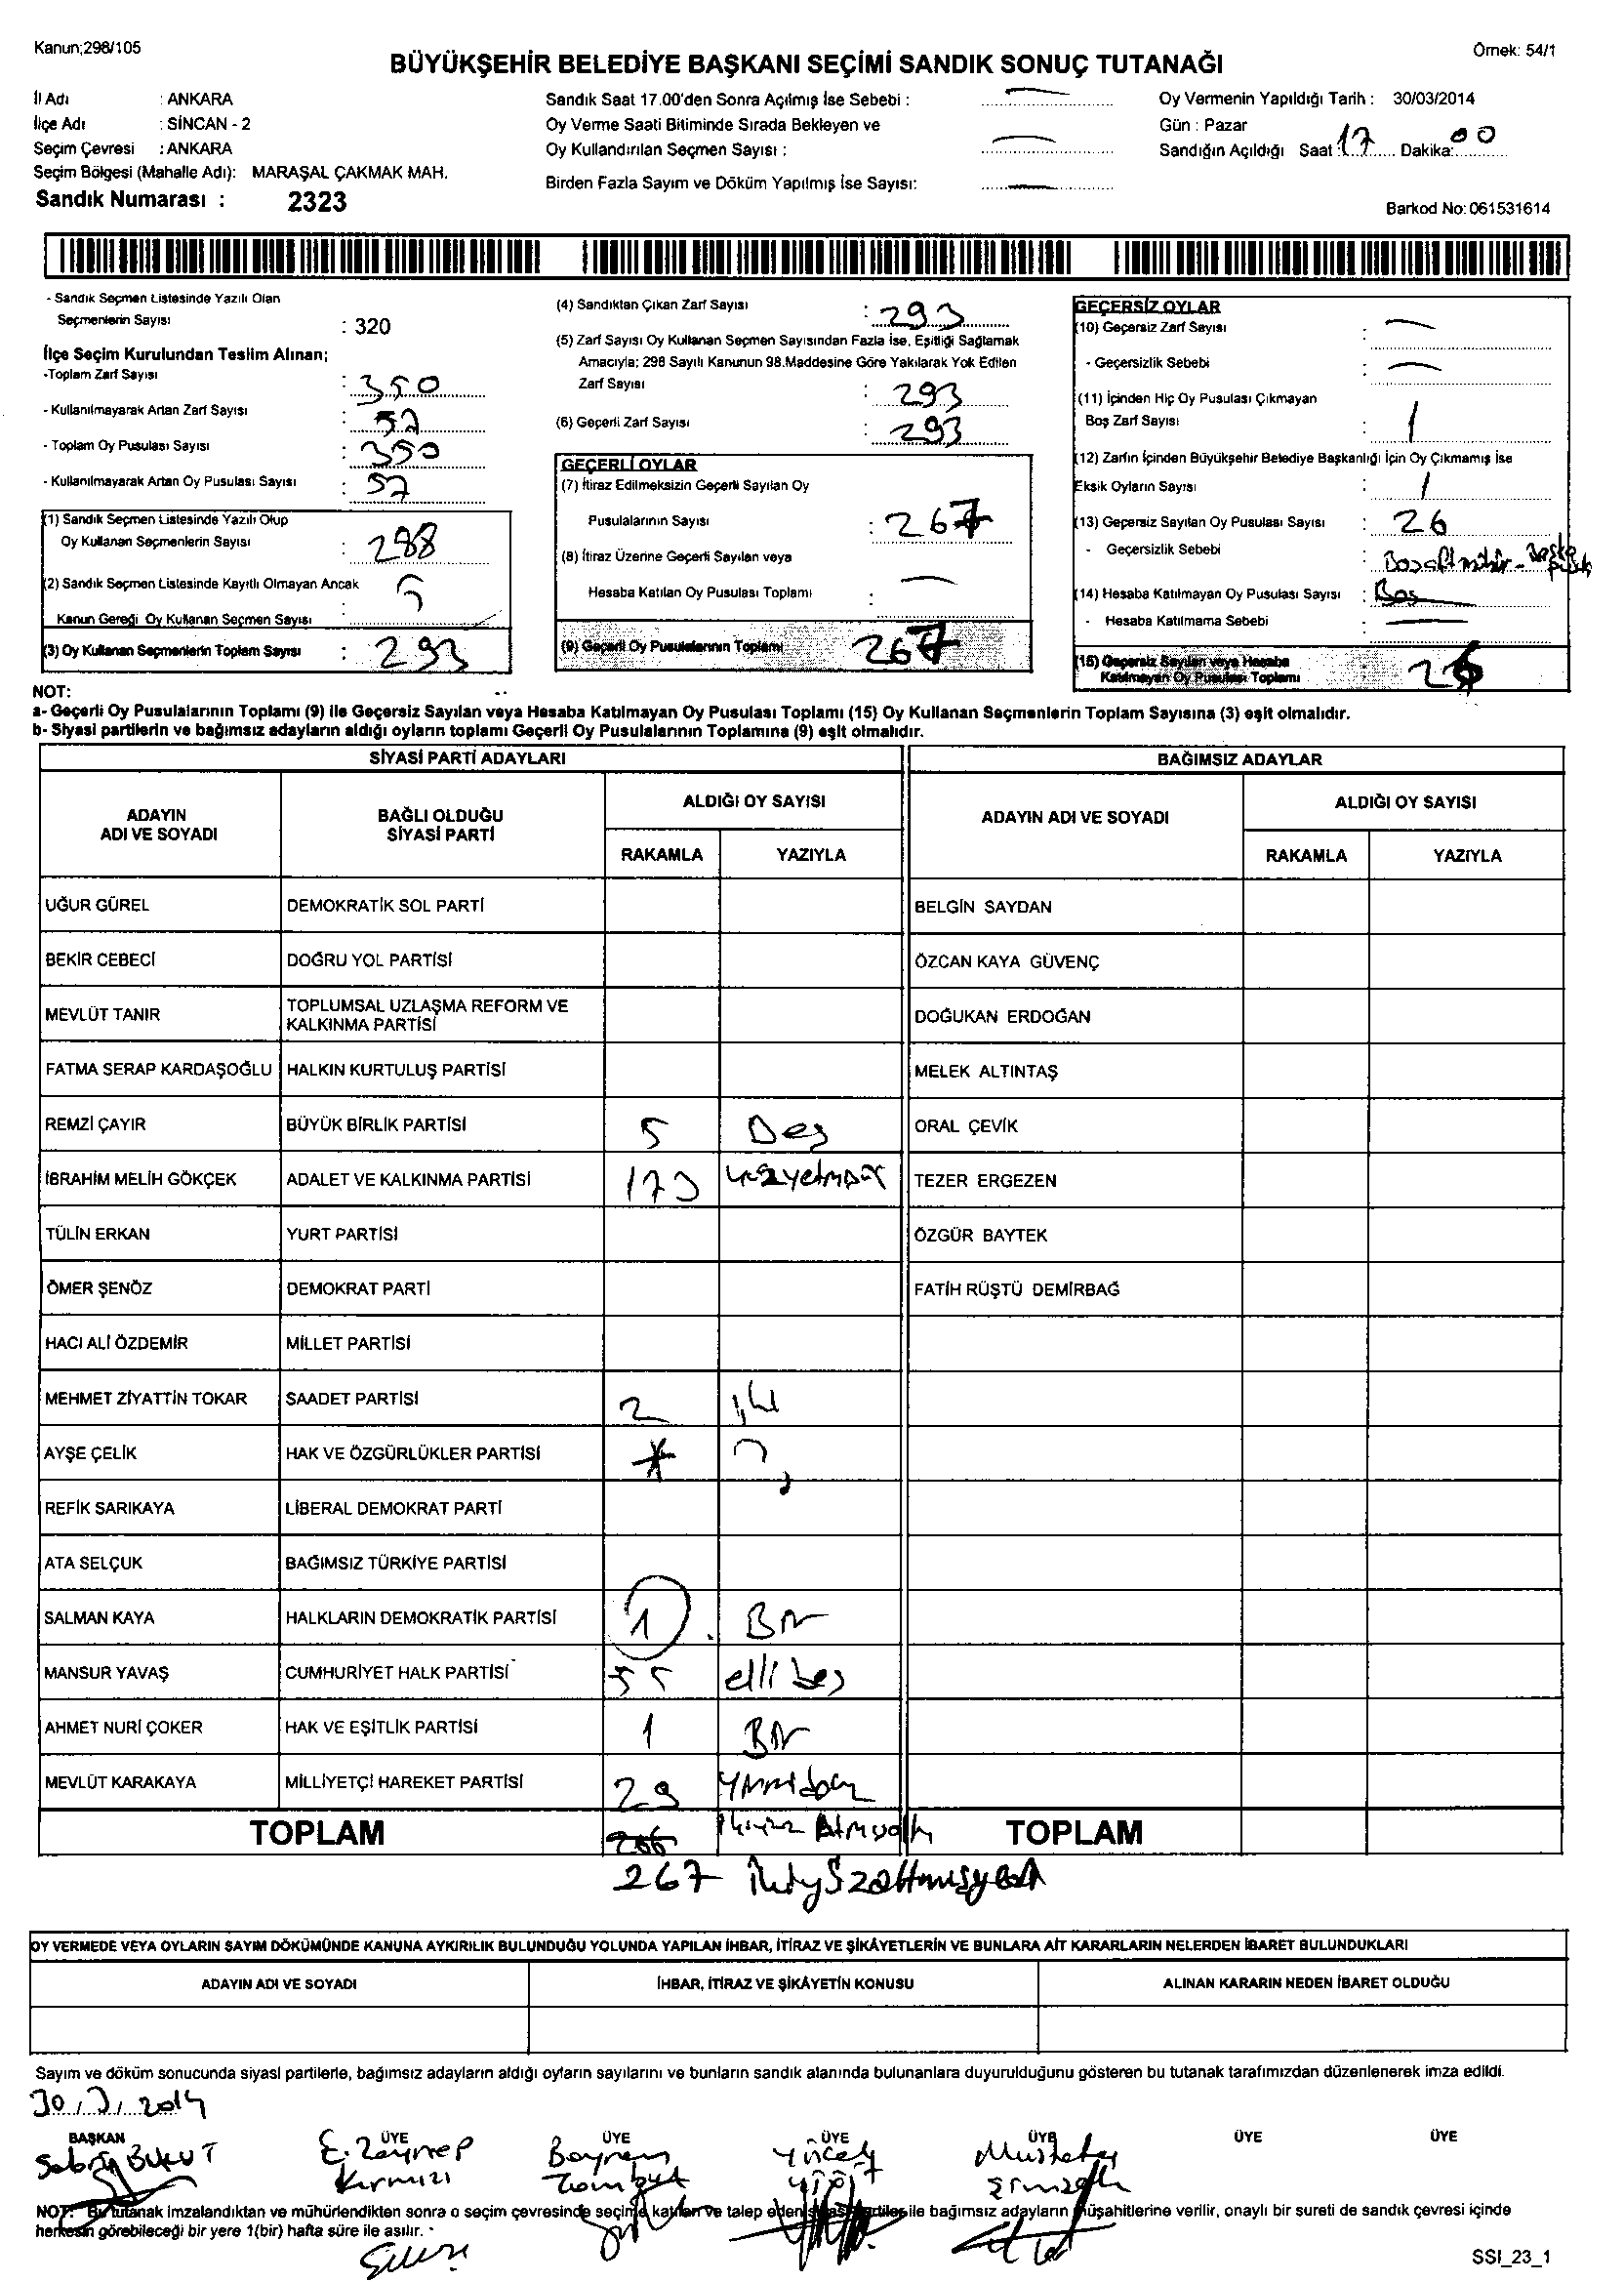 Kanun;298/105
Örnek: 54/1
BÜYÜKŞEHİR BELEDİYE BAŞKANI SEÇİMİ SANDIK SONUÇ TUTANAĞI
İl Adı : ANKARA
İlçe Adı : SİNCAN - 2
Seçim Çevresi : ANKARA
Seçim Bölgesi (Mahalle Adı): MARAŞAL ÇAKMAK MAH.
Sandık Numarası : 2323
Sandık Saat 17.00'den Sonra Açılmış İse Sebebi : —
Oy Verme Saati Bitiminde Sırada Bekleyen ve
Oy Kullandırılan Seçmen Sayısı : —
Birden Fazla Sayım ve Döküm Yapılmış İse Sayısı: —
Oy Vermenin Yapıldığı Tarih : 30/03/2014
Gün : Pazar
Sandığın Açıldığı Saat : 17 Dakika: 00
Barkod No: 061531614
- Sandık Seçmen Listesinde Yazılı Olan
Seçmenlerin Sayısı : 320
İlçe Seçim Kurulundan Teslim Alınan;
-Toplam Zarf Sayısı : 350
- Kullanılmayarak Artan Zarf Sayısı : 57
- Toplam Oy Pusulası Sayısı : 350
- Kullanılmayarak Artan Oy Pusulası Sayısı : 57
(1) Sandık Seçmen Listesinde Yazılı Olup
Oy Kullanan Seçmenlerin Sayısı : 288
(2) Sandık Seçmen Listesinde Kayıtlı Olmayan Ancak
Kanun Gereği Oy Kullanan Seçmen Sayısı : 5
(3) Oy Kullanan Seçmenlerin Toplam Sayısı : 293
(4) Sandıktan Çıkan Zarf Sayısı : 293
(5) Zarf Sayısı Oy Kullanan Seçmen Sayısından Fazla İse, Eşitliği Sağlamak
Amacıyla; 298 Sayılı Kanunun 98.Maddesine Göre Yakılarak Yok Edilen
Zarf Sayısı : 293
(6) Geçerli Zarf Sayısı : 293
GEÇERLİ OYLAR
(7) İtiraz Edilmeksizin Geçerli Sayılan Oy
Pusulalarının Sayısı : 267
(8) İtiraz Üzerine Geçerli Sayılan veya
Hesaba Katılan Oy Pusulası Toplamı : —
(9) Geçerli Oy Pusulalarının Toplamı 267
GEÇERSİZ OYLAR
(10) Geçersiz Zarf Sayısı : —
- Geçersizlik Sebebi : —
(11) İçinden Hiç Oy Pusulası Çıkmayan
Boş Zarf Sayısı : 1
(12) Zarfın İçinden Büyükşehir Belediye Başkanlığı İçin Oy Çıkmamış İse
Eksik Oyların Sayısı : 1
(13) Geçersiz Sayılan Oy Pusulası Sayısı : 26
- Geçersizlik Sebebi :
(14) Hesaba Katılmayan Oy Pusulası Sayısı : Boş
- Hesaba Katılmama Sebebi : —
(15) Geçersiz Sayılan veya Hesaba
Katılmayan Oy Pusulası Toplamı 26
NOT:
a- Geçerli Oy Pusulalarının Toplamı (9) ile Geçersiz Sayılan veya Hesaba Katılmayan Oy Pusulası Toplamı (15) Oy Kullanan Seçmenlerin Toplam Sayısına (3) eşit olmalıdır.
b- Siyasi partilerin ve bağımsız adayların aldığı oyların toplamı Geçerli Oy Pusulalarının Toplamına (9) eşit olmalıdır.
SİYASİ PARTİ ADAYLARI BAĞIMSIZ ADAYLAR
ADAYIN ADI VE SOYADI BAĞLI OLDUĞU SİYASİ PARTİ ALDIĞI OY SAYISI ADAYIN ADI VE SOYADI ALDIĞI OY SAYISI
RAKAMLA YAZIYLA RAKAMLA YAZIYLA
UĞUR GÜREL DEMOKRATİK SOL PARTİ BELGİN SAYDAN
BEKİR CEBECİ DOĞRU YOL PARTİSİ ÖZCAN KAYA GÜVENÇ
MEVLÜT TANIR TOPLUMSAL UZLAŞMA REFORM VE KALKINMA PARTİSİ DOĞUKAN ERDOĞAN
FATMA SERAP KARDAŞOĞLU HALKIN KURTULUŞ PARTİSİ MELEK ALTINTAŞ
REMZİ ÇAYIR BÜYÜK BİRLİK PARTİSİ 5 Beş ORAL ÇEVİK
İBRAHİM MELİH GÖKÇEK ADALET VE KALKINMA PARTİSİ 173 TEZER ERGEZEN
TÜLİN ERKAN YURT PARTİSİ ÖZGÜR BAYTEK
ÖMER ŞENÖZ DEMOKRAT PARTİ FATİH RÜŞTÜ DEMİRBAĞ
HACI ALİ ÖZDEMİR MİLLET PARTİSİ
MEHMET ZİYATTİN TOKAR SAADET PARTİSİ 2 iki
AYŞE ÇELİK HAK VE ÖZGÜRLÜKLER PARTİSİ
REFİK SARIKAYA LİBERAL DEMOKRAT PARTİ
ATA SELÇUK BAĞIMSIZ TÜRKİYE PARTİSİ
SALMAN KAYA HALKLARIN DEMOKRATİK PARTİSİ 1 Bir
MANSUR YAVAŞ CUMHURİYET HALK PARTİSİ 55 elli beş
AHMET NURİ ÇOKER HAK VE EŞİTLİK PARTİSİ 1 Bir
MEVLÜT KARAKAYA MİLLİYETÇİ HAREKET PARTİSİ 29
TOPLAM 266 TOPLAM
267 İkiyüzaltmışyedi
OY VERMEDE VEYA OYLARIN SAYIM DÖKÜMÜNDE KANUNA AYKIRILIK BULUNDUĞU YOLUNDA YAPILAN İHBAR, İTİRAZ VE ŞİKÂYETLERİN VE BUNLARA AİT KARARLARIN NELERDEN İBARET BULUNDUKLARI
ADAYIN ADI VE SOYADI İHBAR, İTİRAZ VE ŞİKÂYETİN KONUSU ALINAN KARARIN NEDEN İBARET OLDUĞU
Sayım ve döküm sonucunda siyasi partilerle, bağımsız adayların aldığı oyların sayılarını ve bunların sandık alanında bulunanlara duyurulduğunu gösteren bu tutanak tarafımızdan düzenlenerek imza edildi.
30, 3, 2014
BAŞKAN ÜYE ÜYE ÜYE ÜYE ÜYE ÜYE
E. Zeynep Bayram Yücel
Kırmızı Yiğit
NOT: Bu tutanak imzalandıktan ve mühürlendikten sonra o seçim çevresinde seçime katılan ve talep eden siyasi partiler ile bağımsız adayların müşahitlerine verilir, onaylı bir sureti de sandık çevresi içinde
herkesin görebileceği bir yere 1(bir) hafta süre ile asılır.
SSI_23_1